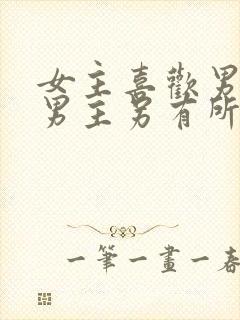 女主喜歡男
男主另有所
一筆一畫一春